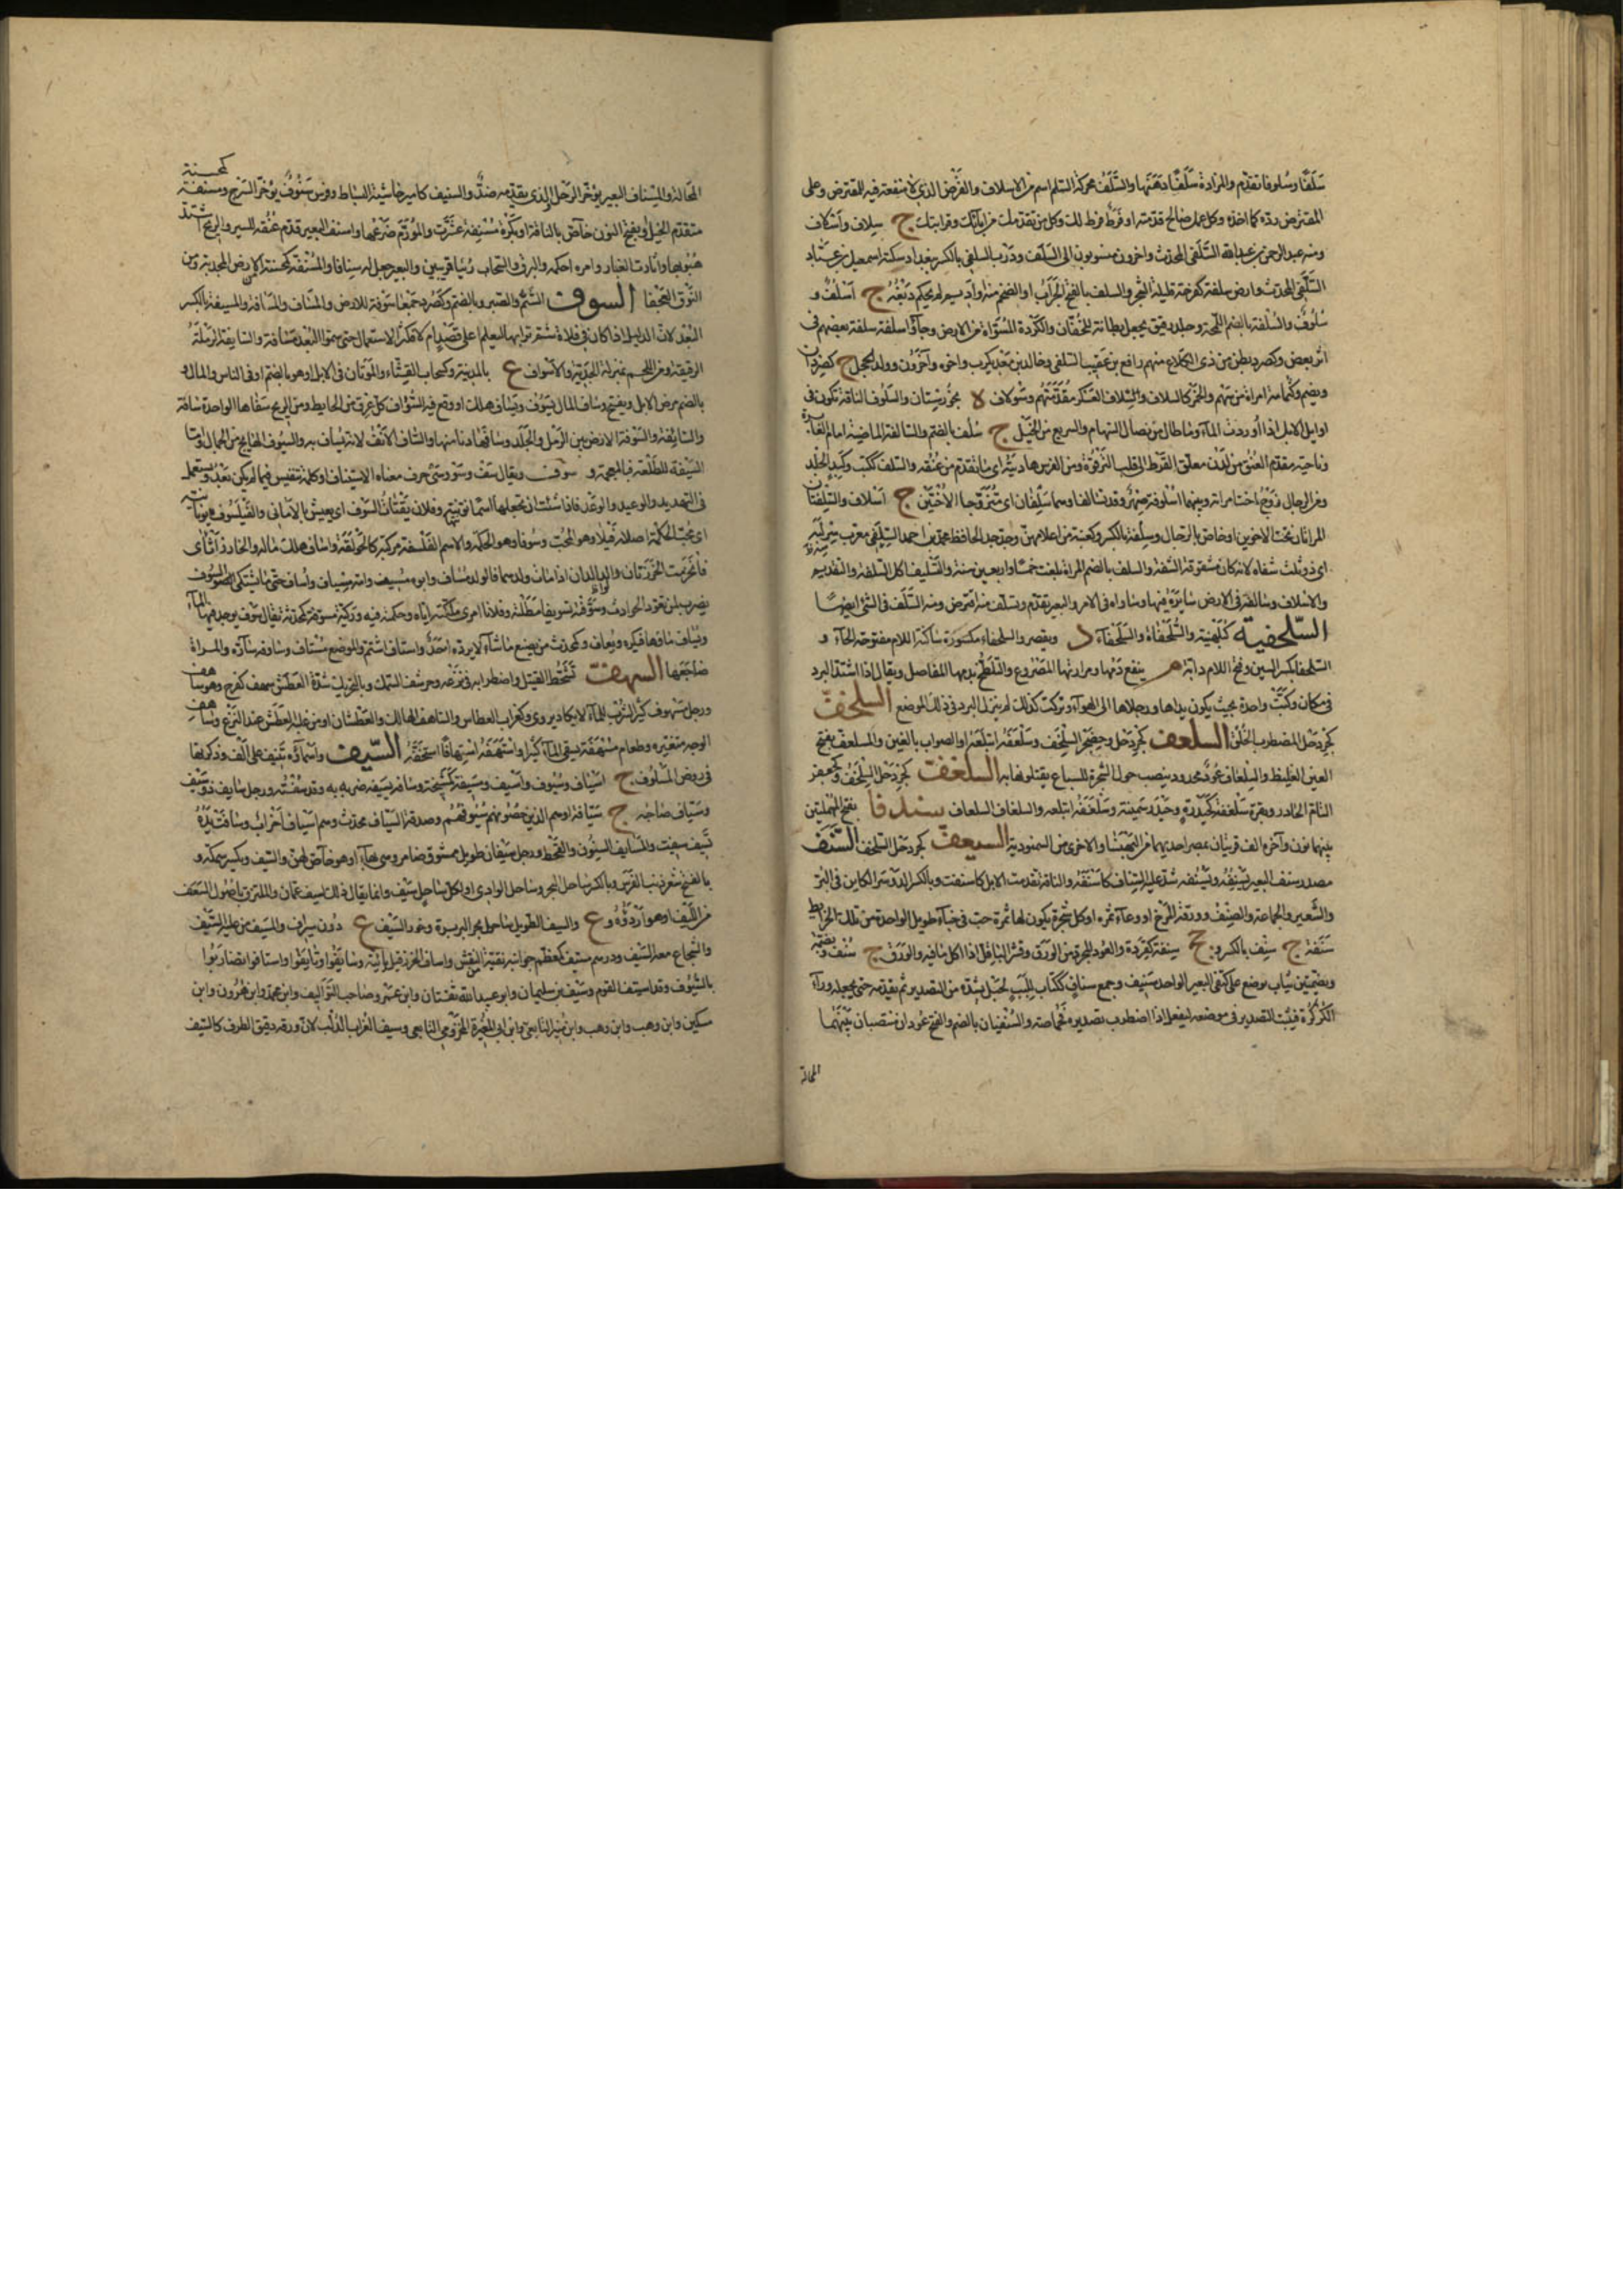 سَلَفًا وسُلوفا تقدّم والمزادةَ سَلْفًا دهَنَها والسَّلَفُ محركة السّلم اسم من الاسلاف والقرض الذى لا منفعة فيه للمقرض وعلى
المقترض ردّه كما اخذه وكل عمل صالح قدّمته او فَرَطٌ فرط لك وكل من تقدّمك من آبائك وقرابتك ج سلاف واسلاف
ومنه عبد الرحمن بن عبد الله السَّلَفى المحدّث واخرون منسوبون الى السَّلَف ودَرْب السِلفى بالكسر ببغداد سكنه اسمعيل بن عبّاد
السِّلَفى المحدّث وارض سلفة كفرحة قليلة الشجر والسلف بالفتح الجراب او الضخم منه او اديم لم يحكم دَبغُهُ ج اَسْلُفٌ و
سُلُوفٌ والسُلفة بالضم اللُّمجة وجلد رقيق يجعل بطانة للخفاف والكُرْدة المُسَوّاة من الارض وجاؤا سلفة سلفة بعضهم فى
اثر بعض وكصرد بطن من ذى الكلاع منهم رافع بن عقيب السلفى وخالد بن معد يكرب واخوه وآخرون وولد الحجل ج كصردان
ويضم وكثمامة امراة من سهم والخمر كالسلاف والسُلاف العسكر مُقدّمتهم وسُولاف لا بخوزستان والسَلُوف الناقة تكون فى
اوايل الابل اذا أوردت المآء وما طال من نصال السّهام والسريع من الخَيْل ج سُلف بالضم والسالفة الماضية امام الغابرة
وناحية مقدّم العنق من لدن معلق القرط الى قلب الترقوة ومن الفرس هاديته اى ما تقدّم من عنقه والسلف ككبد وكَبِد الجلد
ومن الرجال زوج اخت امراته وبينهما اُسْلوفة صِهْر وقد تسالفا وهما سلفان اى متزوّجا الاختَيْن ج اسلاف والسِّلفتان
المراتان تحت الاخوين او خاص بالرجال وسِلفة بالكسر وكعنبة من اعلامهنّ وجدّ جد الحافظ محمد بن احمد السِلَفى معرب سِهْ لَبَه
اى ذو ثلث شفاه لانه كان مشقوق الشفة والسلف بالضم المراة بلغت خمسا واربعين سنة والتسليف اكل السلفة والتقديم
والاسلاف وسالفه فى الارض سايره فيها وساواه فى الامر والبعير تقدم وتسلف منه اقترض ومنه السَّلَف فى الشئ ايضًا
السّلحفية كبُلَهْنية والسُّلَحْفاة والسُّلَحْفآء د ويقصر والسلحفاء مكسورة ساكنة اللام مفتوحة الحآء و
السلحفا بكسر السين وفتح اللام دابة م ينفع دمها ومرارتها المصروع والتلطخ بدمها المفاصل ويقال اذا اشتدّ البرد
فى مكان وكُبّت واحدة بحيث يكون يداها ورجلاها الى الهوآء وتركت كذلك لم ينزل البرد فى ذلك الموضع السلخفّ
كجردحل المضطرب الخلق السلعف كجردحل وحضجر السلخف وسَلْعَفَه ابتلعه او الصواب بالغين والمسلعف بفتح
العين الغليظ والسِلعاف عُودٌ محدود ينصب حول الشجرة للسباع يقتلونها به السلغفّ كجردحل السلخف وكجعفر
التام الحادر وبقرة سَلْغفَفة كَحَيْدَرة وحَيْدَر سمينة وسَلْغَفَه ابتلعه والسلغاف السلعاف سندفا بفتح المهملتين
بينهما نون وآخره الف قريتان بمصر احديهما من البَهْنَسا والاخرى من السمنودية السنعف كجردحل السلخف السَّنَف
مصدر سنف البعير يَسْنِفُهُ ويَسْنُفه شدّ عليه السناف كاَسْنَفَه والناقة تقدمت الابل كاسنفت وبالكسر الدوسر الكاين فى البر
والشعير والجماعة والصِنْفُ وورقة المرْخ او وعاء ثمره او كل شجرة يكون لها ثمرة حب فى خباء طويل الواحدة من تلك الخرايط
سَنْفَة ج سِنْف بالكسر و جج سِنَفَة كقردة والعود المجرد من الورق وقشر الباقلّى اذا اكل ما فيه والورق ج سُنُف وبضمة
وبضمتين ثياب توضع على كتفى البعير الواحد سَنِيف وجمع سِناف ككتاب لِلبَب لحَبْل يشدّه من التصدير ثم يقدّمه حتى يجعله ورآء
الكِرْكِرة فيثبت التصدير فى موضعه ليفعل اذا اضطرب تصديره لخماصته والسُنْفتان بالضم والفتح عودان منتصبان بينهما
المحالة
المَحالة والمِسناف البعير يؤخّر الرَحل والذى يقدّمه ضدّ والسنيف كامير حاشية البساط وفرس سَنُوفٌ يؤخّر السّرج ومسنفة كمحسنة
متقدّم الخيل وبفتح النون خاص بالناقة او بكرة مُسْنِفة عَشَّرت والموَرَّم ضرعها واسنف البعير قدّم عنقه للسير والريح اشتدّ
هُبُوبها واثارت الغبار وامره احكمه والبرق والسحاب رُئيا قريبين والبعير جعل له سنافا والمُسْنَفة كمحسنة الارض المجدبة ومن
النّوق العجفا السوف الشَّم والصَبر وبالضم وكصرد جمعا سَوْفة للارض والمَساف والمسافة والسيفة بالكسر
البُعْد لانّ الدليل اذا كان فى فلاة شمّ ترابها ليعلم على قصدٍ ام لا فكثر الاستعمال حتى سموا البُعْد مسافة والسايفة الرملة
الرقيقة ومن اللحم بمنزلة الحِذْية والاسواف ع بالمدينة وكسحاب القِثّاء والموَتان فى الابل او هو بالضم او فى الناس والمال و
بالضم مرض الابل ويفتح وساف المال يَسُوف ويَساف هلك او وقع فيه السُّواف وكل عِرْق من الحايط ومن الريح سَفاها الواحدة سافة
والسائفة والسَوْفة الارض بين الرمل والجَلَد وسافها دنا منها والساف الانف لانه يُساف به
السَيِّفة للطليعة وسوف ويقال سَفْ وسَوْ وسَىْ حرف معناه الاستيناف او كلمة تنفيس فيما لم يكن بعد ويستعمل
فى التهديد والوعيد والوعد فاذا شئت ان تجعلها اسما نوّنتها وفلان يقتات السَّوْف اى يعيش بالامانى والفيلسوف يونانية
اى محبّ الحكمة اصله فيلا وهو المحب وسُوفا وهو الحكمة والاسم الفلسفة مركبة كالحَوْلَقة واساف هلك ماله والخارز أثْأى
فانخرمت الخُرْزتان والوالدان اذا مات ولدهما فالولد مُساف وابوه مُسيف وامه مِسياف وأساف حتى ما يشتكى السُّواف
يضرب لمن تعوّد الحوادث وسَوَّفته تسويفا مَطَلْته وفلانا امرى ملكته اياه وحكمته فيه وركيّة مسوّفة كمحدثة يقال سوف يوجد فيها المآء
ويُساف مآؤها فيكره ويُعاف وكمحدّث من يصنع ما شآء لا يردّه احَدٌ واستاف اشتم والموضع مُسْتاف وساوفه سارّه والمراة
ضاجَعَها السهف تشحّط القتيل واضطرابه فى نزعه وحرشف السمك وبالتحريك شدّة العطش سهف كفرح وهو ساهف
ورجل سَهوف كثير الشرب للمآء لا يكاد يروى وكغراب العطاش والساهف الهالك والعَطْشان او من غلبه العطش عند النزع وساهف
الوجه متغيّره وطعام مَسْهَفة يسقى المآء كثيرا واسْتَهَفَه استهافًا استخفّه السّيف واسمآؤه تنيف على الف وذكرتها
فى روض المسلوف ج اسياف وسُيُوف واَسْيف ومسيفة كَمَشْيخة وسافه يَسيفه ضربه به وقد سِفْته ورجل سايف ذو سَيْف
وسَيّاف صاحبه ج سيّافة او هم الذين حصُونهم سُيُوفهُم وصدقة السيّاف محدّث وهم اسياف أحْراب وسافت يدُهُ
تَسيف سَئِفت والمسايف السنون والقحط ورجل سَيْفان طويل ممشوق ضامر وهى بهآء او هو خاص بهن والسيف ويكسر سمكة و
بالفتح شعر ذنب الفرس وبالكسر ساحل البحر وساحل الوادى او لكل ساحل سيف وانما يقال ذلك لسيف عُمان والملتزق باصول السعف
من الليف وهو اَرْدَؤُه وع والسيف الطويل ساحل بحر البربرة وخور السَّيْف ع دون سيراف والمسيف من عليه السَّيْف
والشجاع معه السيف ودرهم مسيف كمعظّم جوانبه نقيّة من النقش واساف الخرز قيل يائيّة وسايَفُوا وتَسايَفُوا واستافوا تضاربوا
بالسُّيُوف وقد استيف القوم وسَيْف بن سليمان وابو عبيد الله ثقتان وابن عمر صاحب التواليف وابن محمد وابن هرون وابن
مسكين وابن وهب وابن منير التابعى وابن ابى المغيرة المخزومى التابعى وسيف الغراب الدَّلَبوث لانّ ورقه دقيق الطرف كالسيف